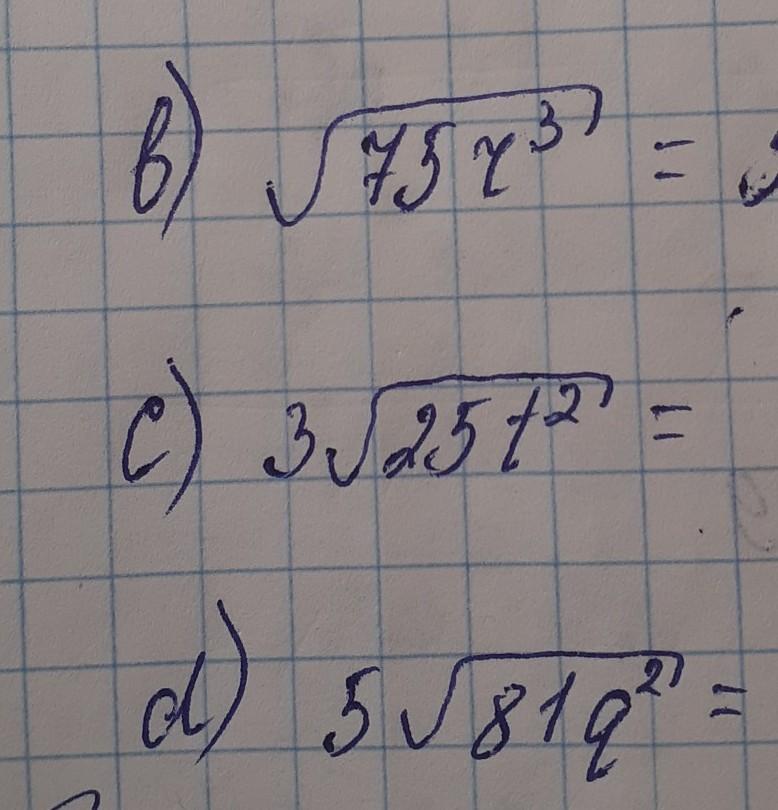 b) √75r³ =
c) 3√25t² =
d) 5√81q² =